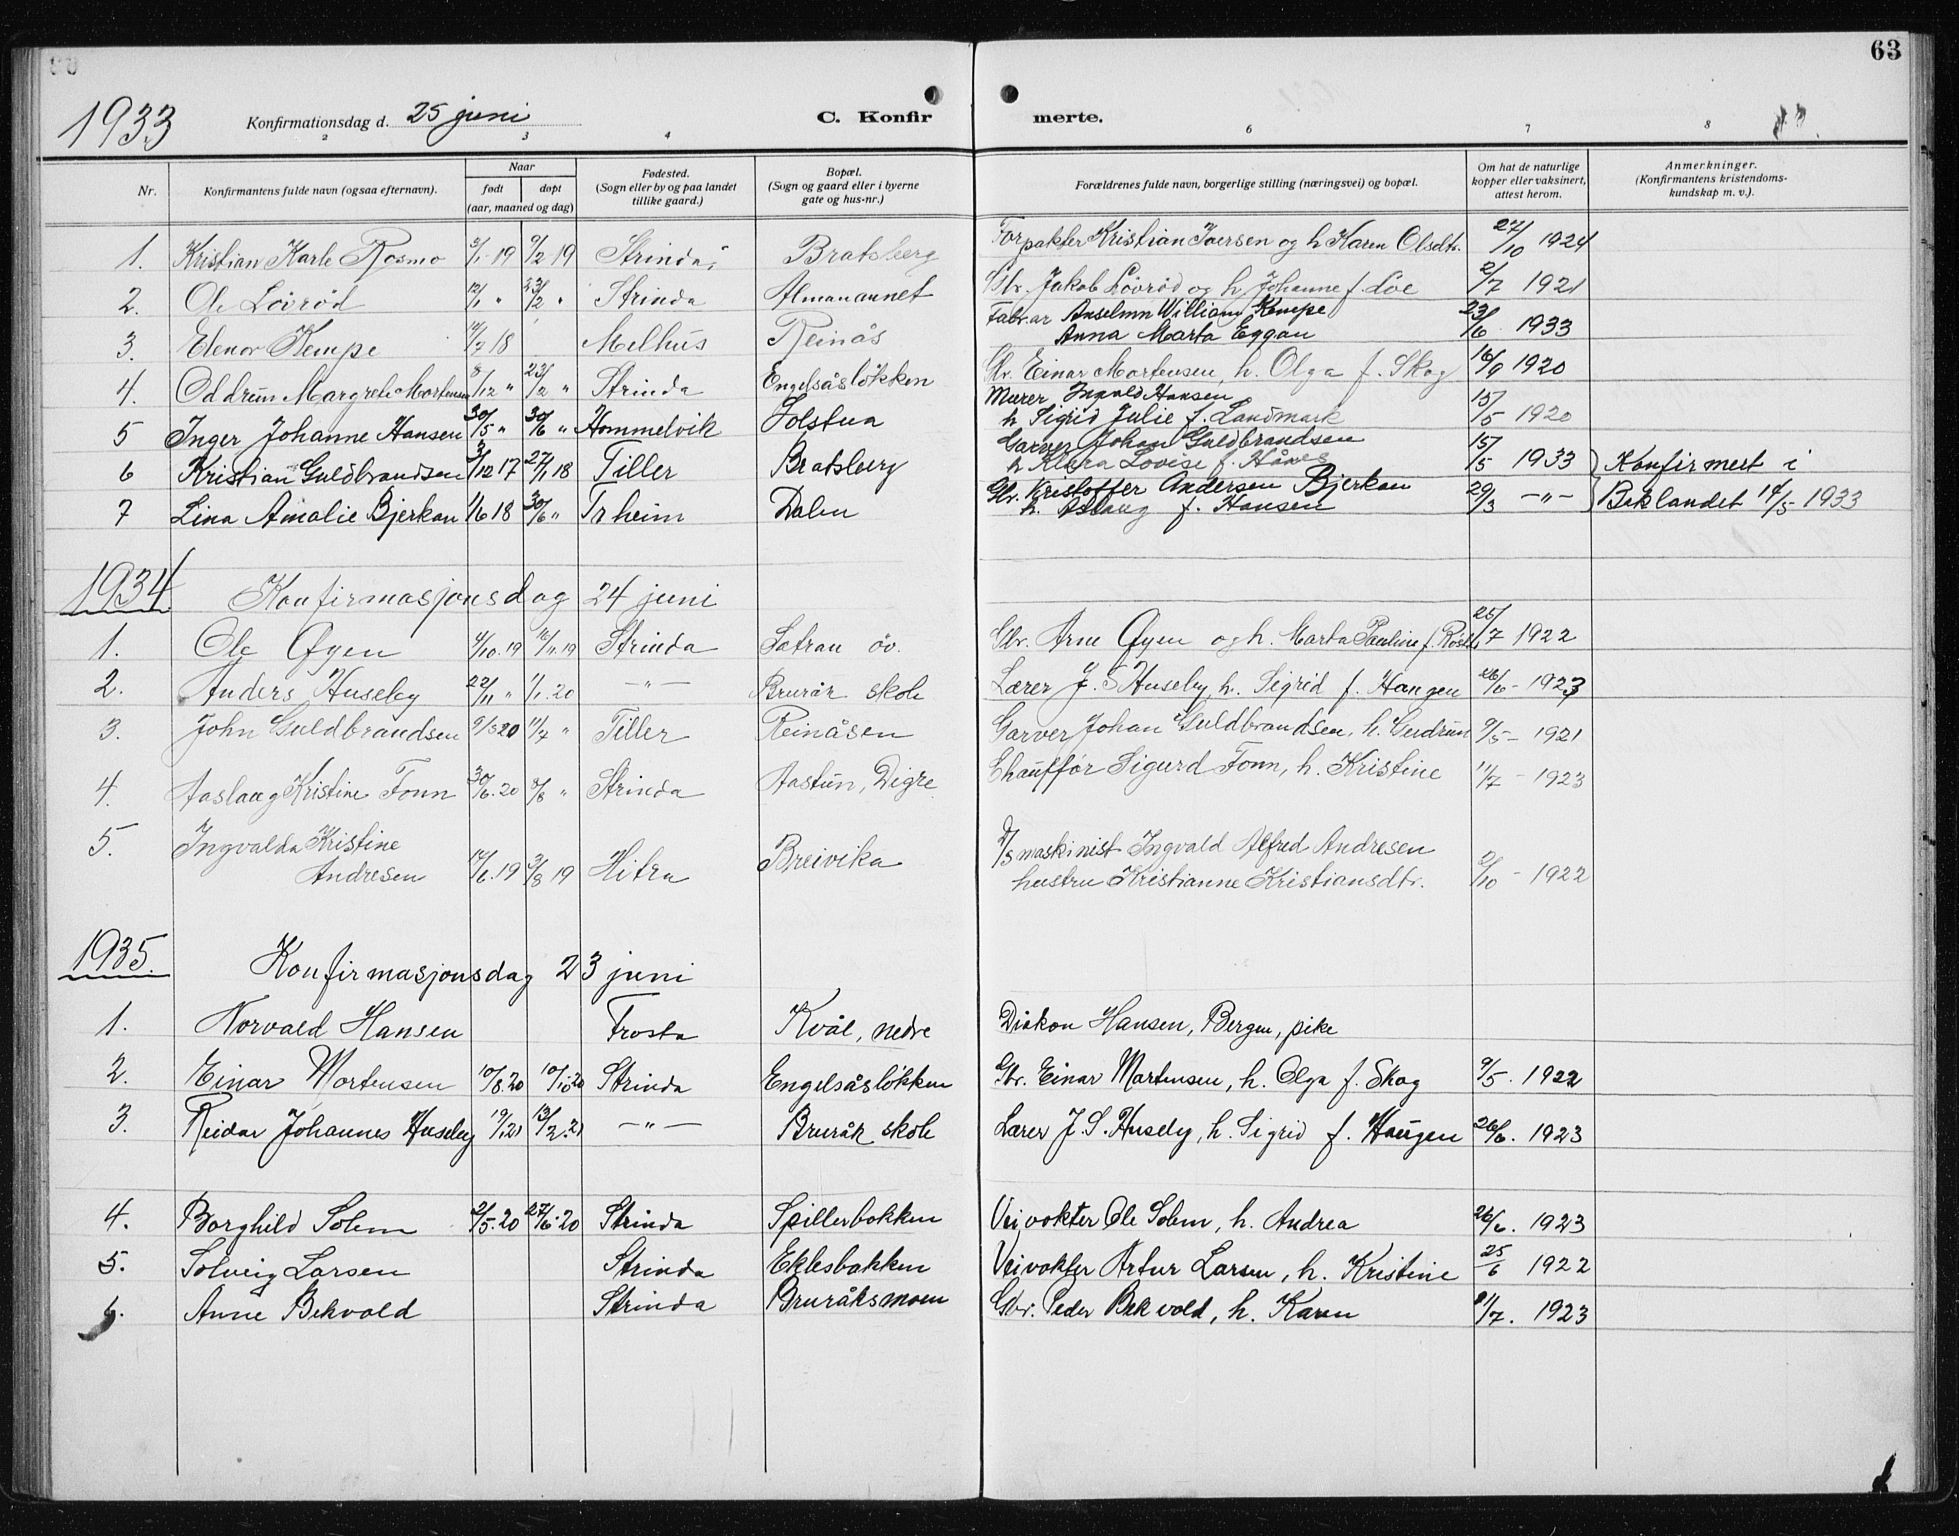 63
1933 Konfirmationsdag d. 25 juni C. Konfirmerte.
2 3 4 6 7 8
Nr. Konfirmantens fulde navn (ogsaa efternavn). Naar født døpt (aar, maaned og dag) Fødested. (Sogn eller by og paa landet tillike gaard.) Bopæl. (Sogn og gaard eller i byerne gate og hus-nr.) Forældrenes fulde navn, borgerlige stilling (næringsvei) og bopæl. Om hat de naturlige kopper eller vaksinert, attest herom. Anmerkninger. (Konfirmantens kristendomskundskap m. v.).
1. Kristian Karle Rosmo 3/1 19 9/2 19 Strinda Bratsberg Forpakter Kristian Iversen og h Karen Olsdtr. 27/10 1924
2. Ole Lövröd 12/1 " 23/2 " Strinda Almanannet Gbr. Jakob Lövröd og h Johanne f. Löe 2/7 1921
3. Elenor Kempe 18 Melhus Reinås Fabr.ar Anselmn William Kempe
Anna Marta Eggan 23/6 1933
4. Oddrun Margrete Mortensen 8/12 " 23/2 " Strinda Engelsåslökken Gbr. Einar Mortensen, h. Olga f. Skog 16/9 1920
5 Inger Johanne Hansen 30/5 " 30/6 " Hommelvik Solstua Murer Ingvald Hansen
h Sigrid Julie f. Landmark 15/5 1920
6 Kristian Guldbrandsen 3/12 17 27/1 18 Tiller Bratsberg Garver Johan Guldbrandsen
h Klara Lovise f. 15/5 1933 Konfirmert i
7 Lina Amalie Bjerkan 1/6 18 30/6 " Trheim Dalen Gbr. Kristoffer Andersen Bjerkan
h. Aslaug f. Hansen 29/3 -"- Baklandet 14/5 1933
1934 Konfirmasjonsdag 24 juni
1. Ole Øyen 4/10.19 16/11.19 Strinda Satran öv. Gbr. Arne Øyen og h. Marta Pauline f. 25/7 1922
2. Anders Huseby 22/11 " 1/1.20 -"- Bruråk skole Lærer J. S Huseby, h. Sigrid f. Haugen 26/6 - 1923
3. John Guldbrandsen 9/3 20 11/4 " Tiller Reinåsen Garver Johan Guldbrandsen, h. Gudrun 9/5 - 1921
4. Aaslaug Kristine Fonn 30/6.20 8/8 " Strinda Aastun, Digre Chaufför Sigurd Fonn, h. Kristine 11/7 - 1923
5. Ingvalda Kristine
Andresen 17/6.19 3/8 19 Hitra Breivika D/S maskinist Ingvald Alfred Andresen
hustru Kristianne Kristiansdtr. 2/10 - 1922
1935. Konfirmasjonsdag 23 juni
1. Norvald Hansen Frosta Kvål, nedre Diakon Hansen, Bergen, pike
2. Einar Mortensen 10/8.20 10/10.20 Strinda Engelsåslökken Gbr. Einar Mortensen, h. Olga f. Skog 9/5. 1922
3. Reidar Johannes Huseby 19/1.21 13/2.21 -"- Bruråk skole Lærer J. S. Huseby, h. Sigrid f. Haugen 26/6. 1923
4. Borghild Solem 2/5.20 27/6.20 Strinda Spillerbakken Veivokter Ole Solem, h. Andrea 26/6. 1923
5. Solveig Larsen Strinda Eklesbakken Veivokter Artur Larsen, h. Kristine 25/6 1922
6. Anne Bekvold Strinda Bruråksmoen Gbr. Peder Bekvold, h. Karen 21/7. 1923